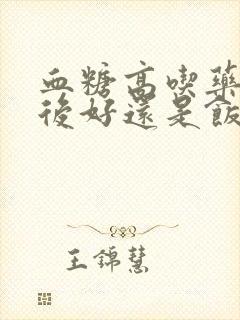 血糖高喫藥
後好還是飯
王錦慧